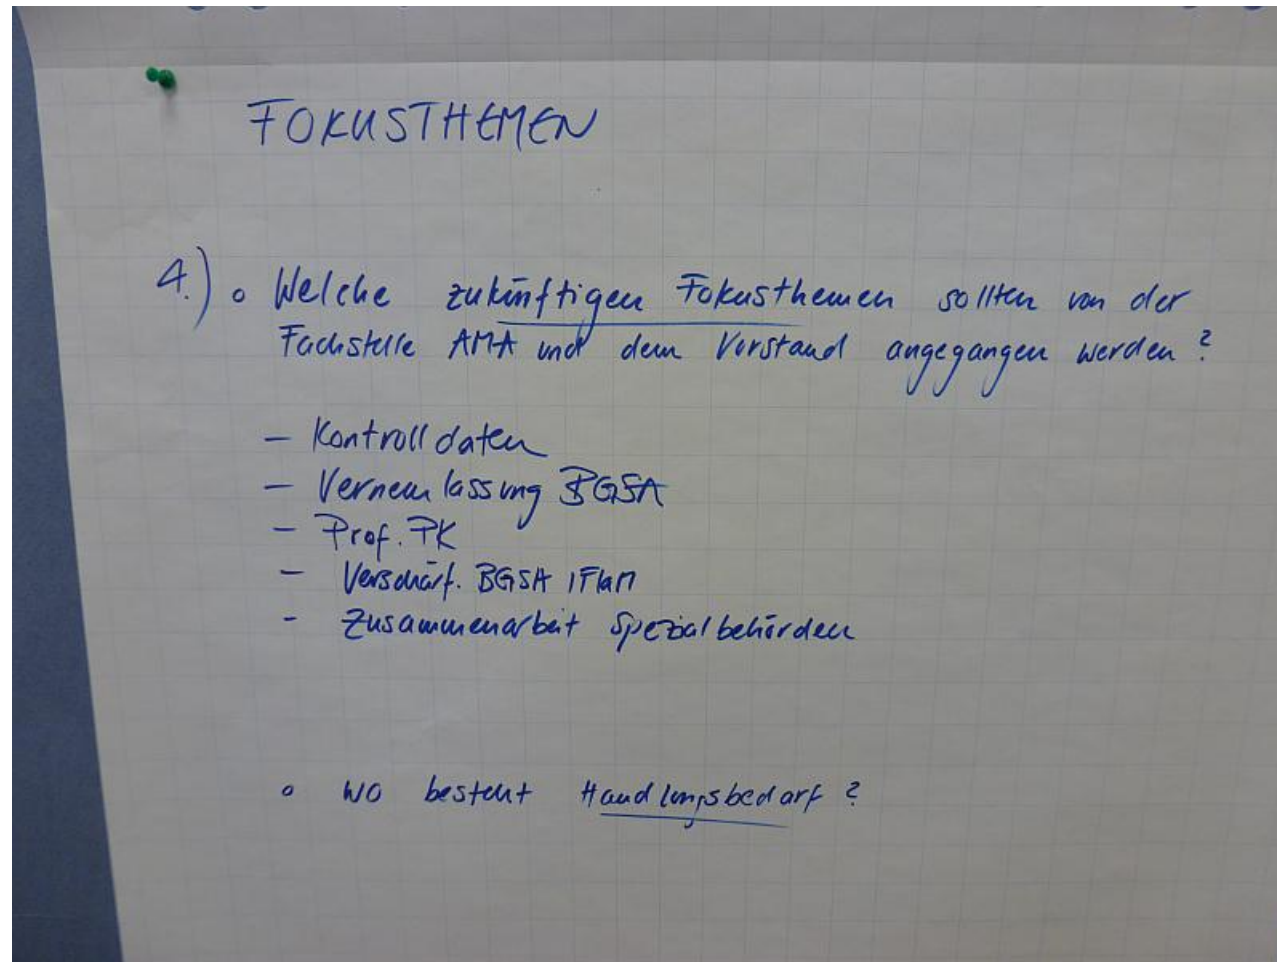 FOKUSTHEMEN
4.) o Welche zukünftigen Fokusthemen sollten von der
Fachstelle AMA und dem Vorstand angegangen werden?
- Kontrolldaten
- Vernemlassung BGSA
- Prof. PK
- Verschärf. BGSA / FlaM
- Zusammenarbeit Spezialbehörden
o Wo besteht Handlungsbedarf?